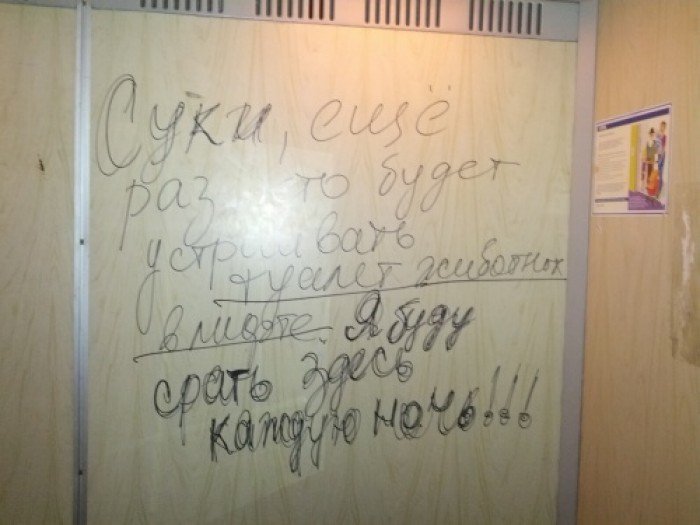 Суки, ещё
раз то будет
устраивать
туалет животных
в лифте. Я буду
срать здесь
каждую ночь!!!